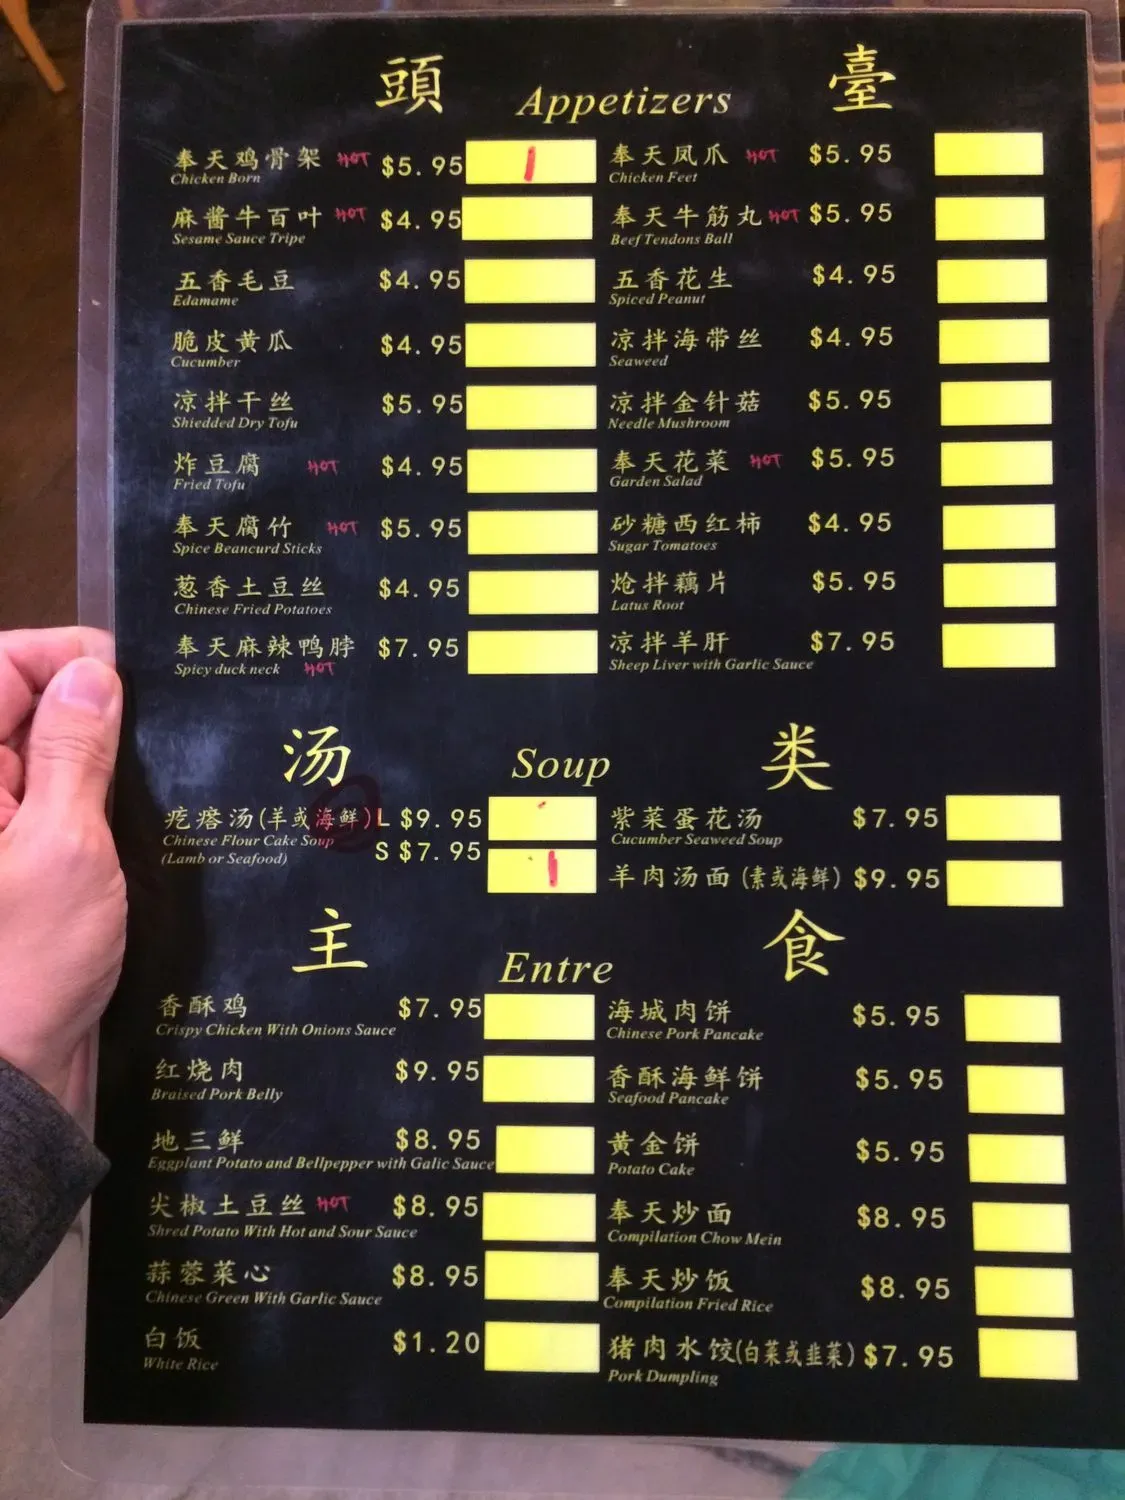 頭 Appetizers 臺
奉天鸡骨架 HOT $5.95 1
Chicken Born
麻酱牛百叶 HOT $4.95
Sesame Sauce Tripe
五香毛豆 $4.95
Edamame
脆皮黄瓜 $4.95
Cucumber
凉拌干丝 $5.95
Shiedded Dry Tofu
炸豆腐 HOT $4.95
Fried Tofu
奉天腐竹 HOT $5.95
Spice Beancurd Sticks
葱香土豆丝 $4.95
Chinese Fried Potatoes
奉天麻辣鸭脖 $7.95
Spicy duck neck HOT
奉天凤爪 HOT $5.95
Chicken Feet
奉天牛筋丸 HOT $5.95
Beef Tendons Ball
五香花生 $4.95
Spiced Peanut
凉拌海带丝 $4.95
Seaweed
凉拌金针菇 $5.95
Needle Mushroom
奉天花菜 HOT $5.95
Garden Salad
砂糖西红柿 $4.95
Sugar Tomatoes
炝拌藕片 $5.95
Latus Root
凉拌羊肝 $7.95
Sheep Liver with Garlic Sauce
汤 Soup 类
疙瘩汤(羊或海鲜) L $9.95
Chinese Flour Cake Soup
(Lamb or Seafood) S $7.95 1
紫菜蛋花汤 $7.95
Cucumber Seaweed Soup
羊肉汤面 (素或海鲜) $9.95
主 Entre 食
香酥鸡 $7.95
Crispy Chicken With Onions Sauce
红烧肉 $9.95
Braised Pork Belly
地三鲜 $8.95
Eggplant Potato and Bellpepper with Galic Sauce
尖椒土豆丝 HOT $8.95
Shred Potato With Hot and Sour Sauce
蒜蓉菜心 $8.95
Chinese Green With Garlic Sauce
白饭 $1.20
White Rice
海城肉饼 $5.95
Chinese Pork Pancake
香酥海鲜饼 $5.95
Seafood Pancake
黄金饼 $5.95
Potato Cake
奉天炒面 $8.95
Compilation Chow Mein
奉天炒饭 $8.95
Compilation Fried Rice
猪肉水饺(白菜或韭菜) $7.95
Pork Dumpling